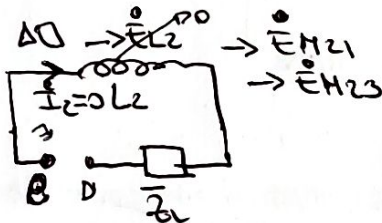 ΔO → ĖL2 → ĖM21
→ ĖM23
İ2=0 L2
B D
Z̄L